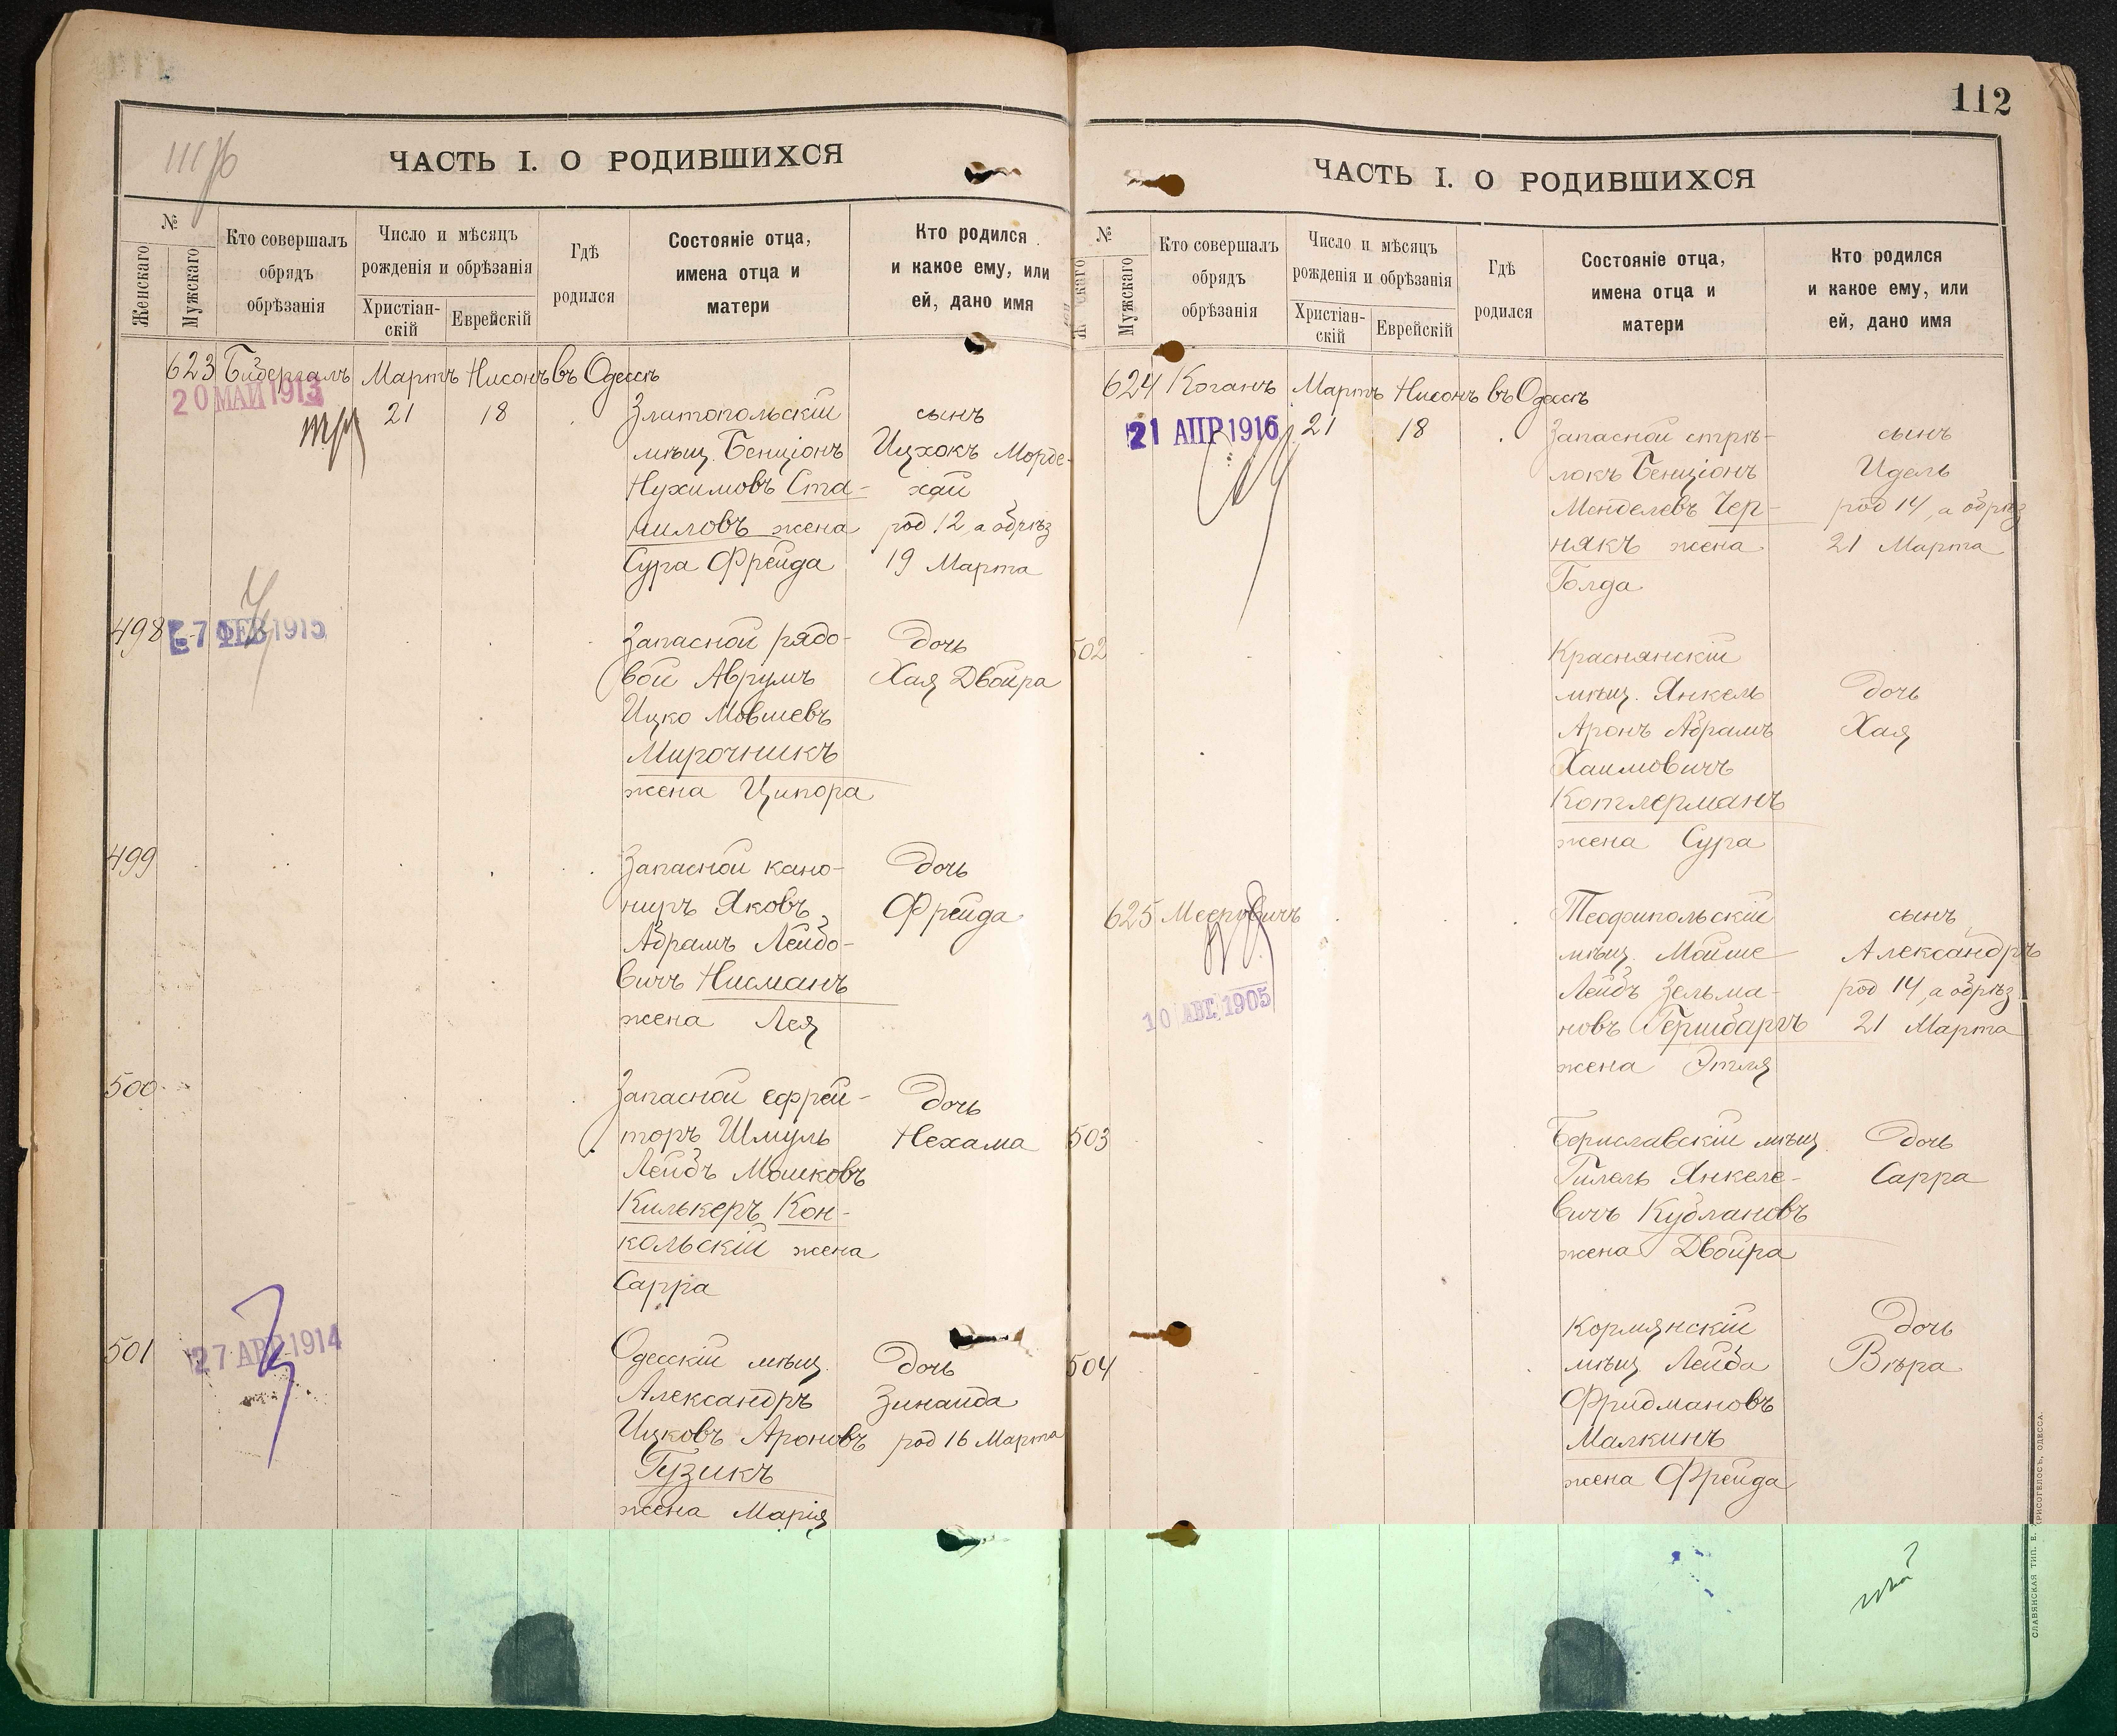 111 об
ЧАСТЬ I. О РОДИВШИХСЯ
№
Женскаго
Мужскаго
Кто совершалъ
обрядъ
обрѣзанія
Число и мѣсяцъ
рожденія и обрѣзанія
Христіан-
скій
Еврейскій
Гдѣ
родился
Состояніе отца,
имена отца и
матери
Кто родился
и какое ему, или
ей, дано имя
623 Бибергалъ Мартъ Нисонъ въ Одессѣ
20 МАЙ 1913
21 18 Златопольскій сынъ
мѣщ. Бенціонъ Ицхокъ Морде-
Нухимовъ Ста- хай
ниловъ жена род 12, а обрѣз
Сура Фрейда 19 Марта
498 7 ФЕВ 1915 Запасной рядо- дочь
вой Аврумъ Хая Двойра
Ицко Мовшевъ
Мирочникъ
жена Ципора
499 Запасной кано- дочь
ниръ Яковъ Фрейда
Абрамъ Лейбо-
вичъ Нисманъ
жена Лея
500 Запасной ефрей- дочь
торъ Шмуль Нехама
Лейбъ Мошковъ
Килькеръ Кон-
кольскій жена
Сарра
501 27 АПР 1914 Одесскій мѣщ. дочь
Александръ Зинаида
Ицковъ Ароновъ род 16 Марта
Гузикъ
жена Марія
112
ЧАСТЬ I. О РОДИВШИХСЯ
№
скаго
Мужскаго
Кто совершалъ
обрядъ
обрѣзанія
Число и мѣсяцъ
рожденія и обрѣзанія
Христіан-
скій
Еврейскій
Гдѣ
родился
Состояніе отца,
имена отца и
матери
Кто родился
и какое ему, или
ей, дано имя
624 Коганъ Мартъ Нисонъ въ Одессѣ
21 АПР 1916 21 18 Запасной стрѣ- сынъ
локъ Бенціонъ Идель
Менделевъ Чер- род 14, а обрѣз
някъ жена 21 Марта
Голда
502 Краснянскій
мѣщ. Янкель дочь
Аронъ Абрамъ Хая
Хаимовичъ
Котлерманъ
жена Сура
625 Мееровичъ Теофипольскій сынъ
мѣщ. Мойше Александръ
Лейбъ Зельма- род 14, а обрѣз
новъ Гершбаргъ 21 Марта
10 АВГ. 1905
жена Этля
503 Бориславскій мѣщ дочь
Гилель Янкеле- Сарра
вичъ Кублановъ
жена Двойра
Кормянскій дочь
504 мѣщ Лейба Вѣра
Фридмановъ
Малкинъ
жена Фрейда
СЛАВЯНСКАЯ ТИП. Е. ХРИСОГЕЛОСЪ, ОДЕССА.